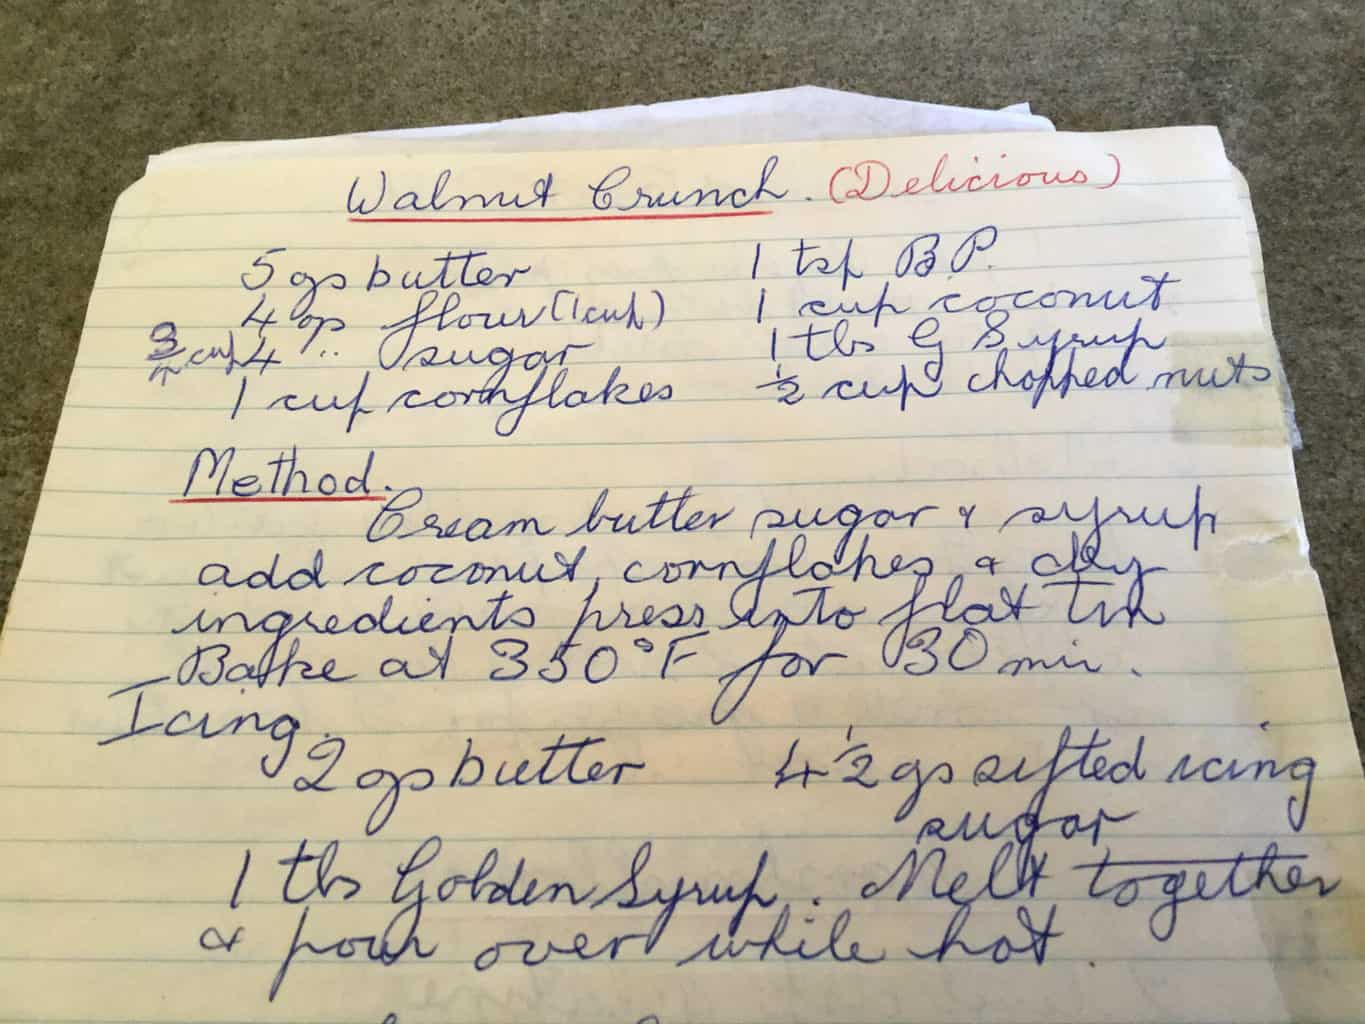 Walnut Crunch. (Delicious)
5 ozs butter
1 tsp B.P.
4 ozs flour (1 cup)
1 cup coconut
3/4 cup 4 ".. sugar
1 tbs G Syrup
1 cup cornflakes
1/2 cup chopped nuts
Method.
Cream butter sugar & syrup
add coconut, cornflakes & dry
ingredients press into flat tin
Bake at 350°F for 30 min.
Icing.
2 ozs butter
4 1/2 ozs sifted icing
sugar
1 tbs Golden Syrup. Melt together
& pour over while hot.